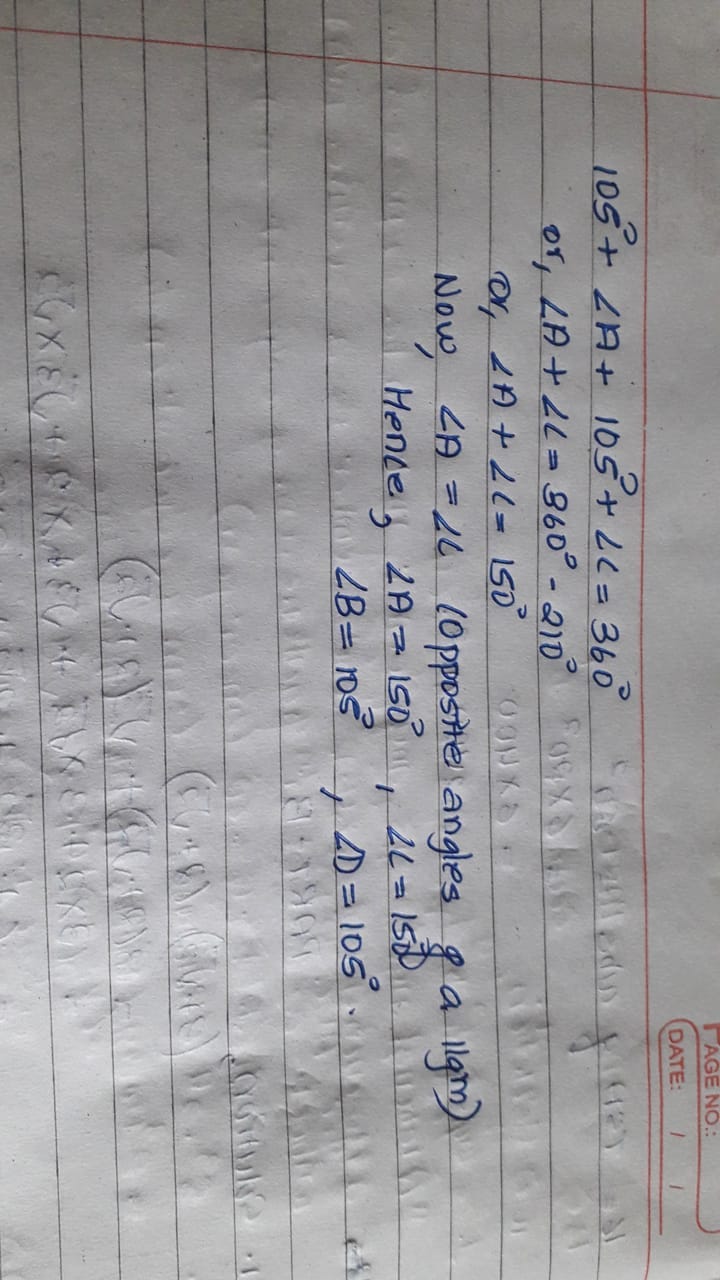 PAGE NO.:
DATE: / /
105° + ∠A + 105° + ∠C = 360°
or, ∠A + ∠C = 360° - 210°
or, ∠A + ∠C = 150°
Now, ∠A = ∠C (oppposite angles of a ||gm)
Hence, ∠A = 150°, ∠C = 150°
∠B = 105°, ∠D = 105°.